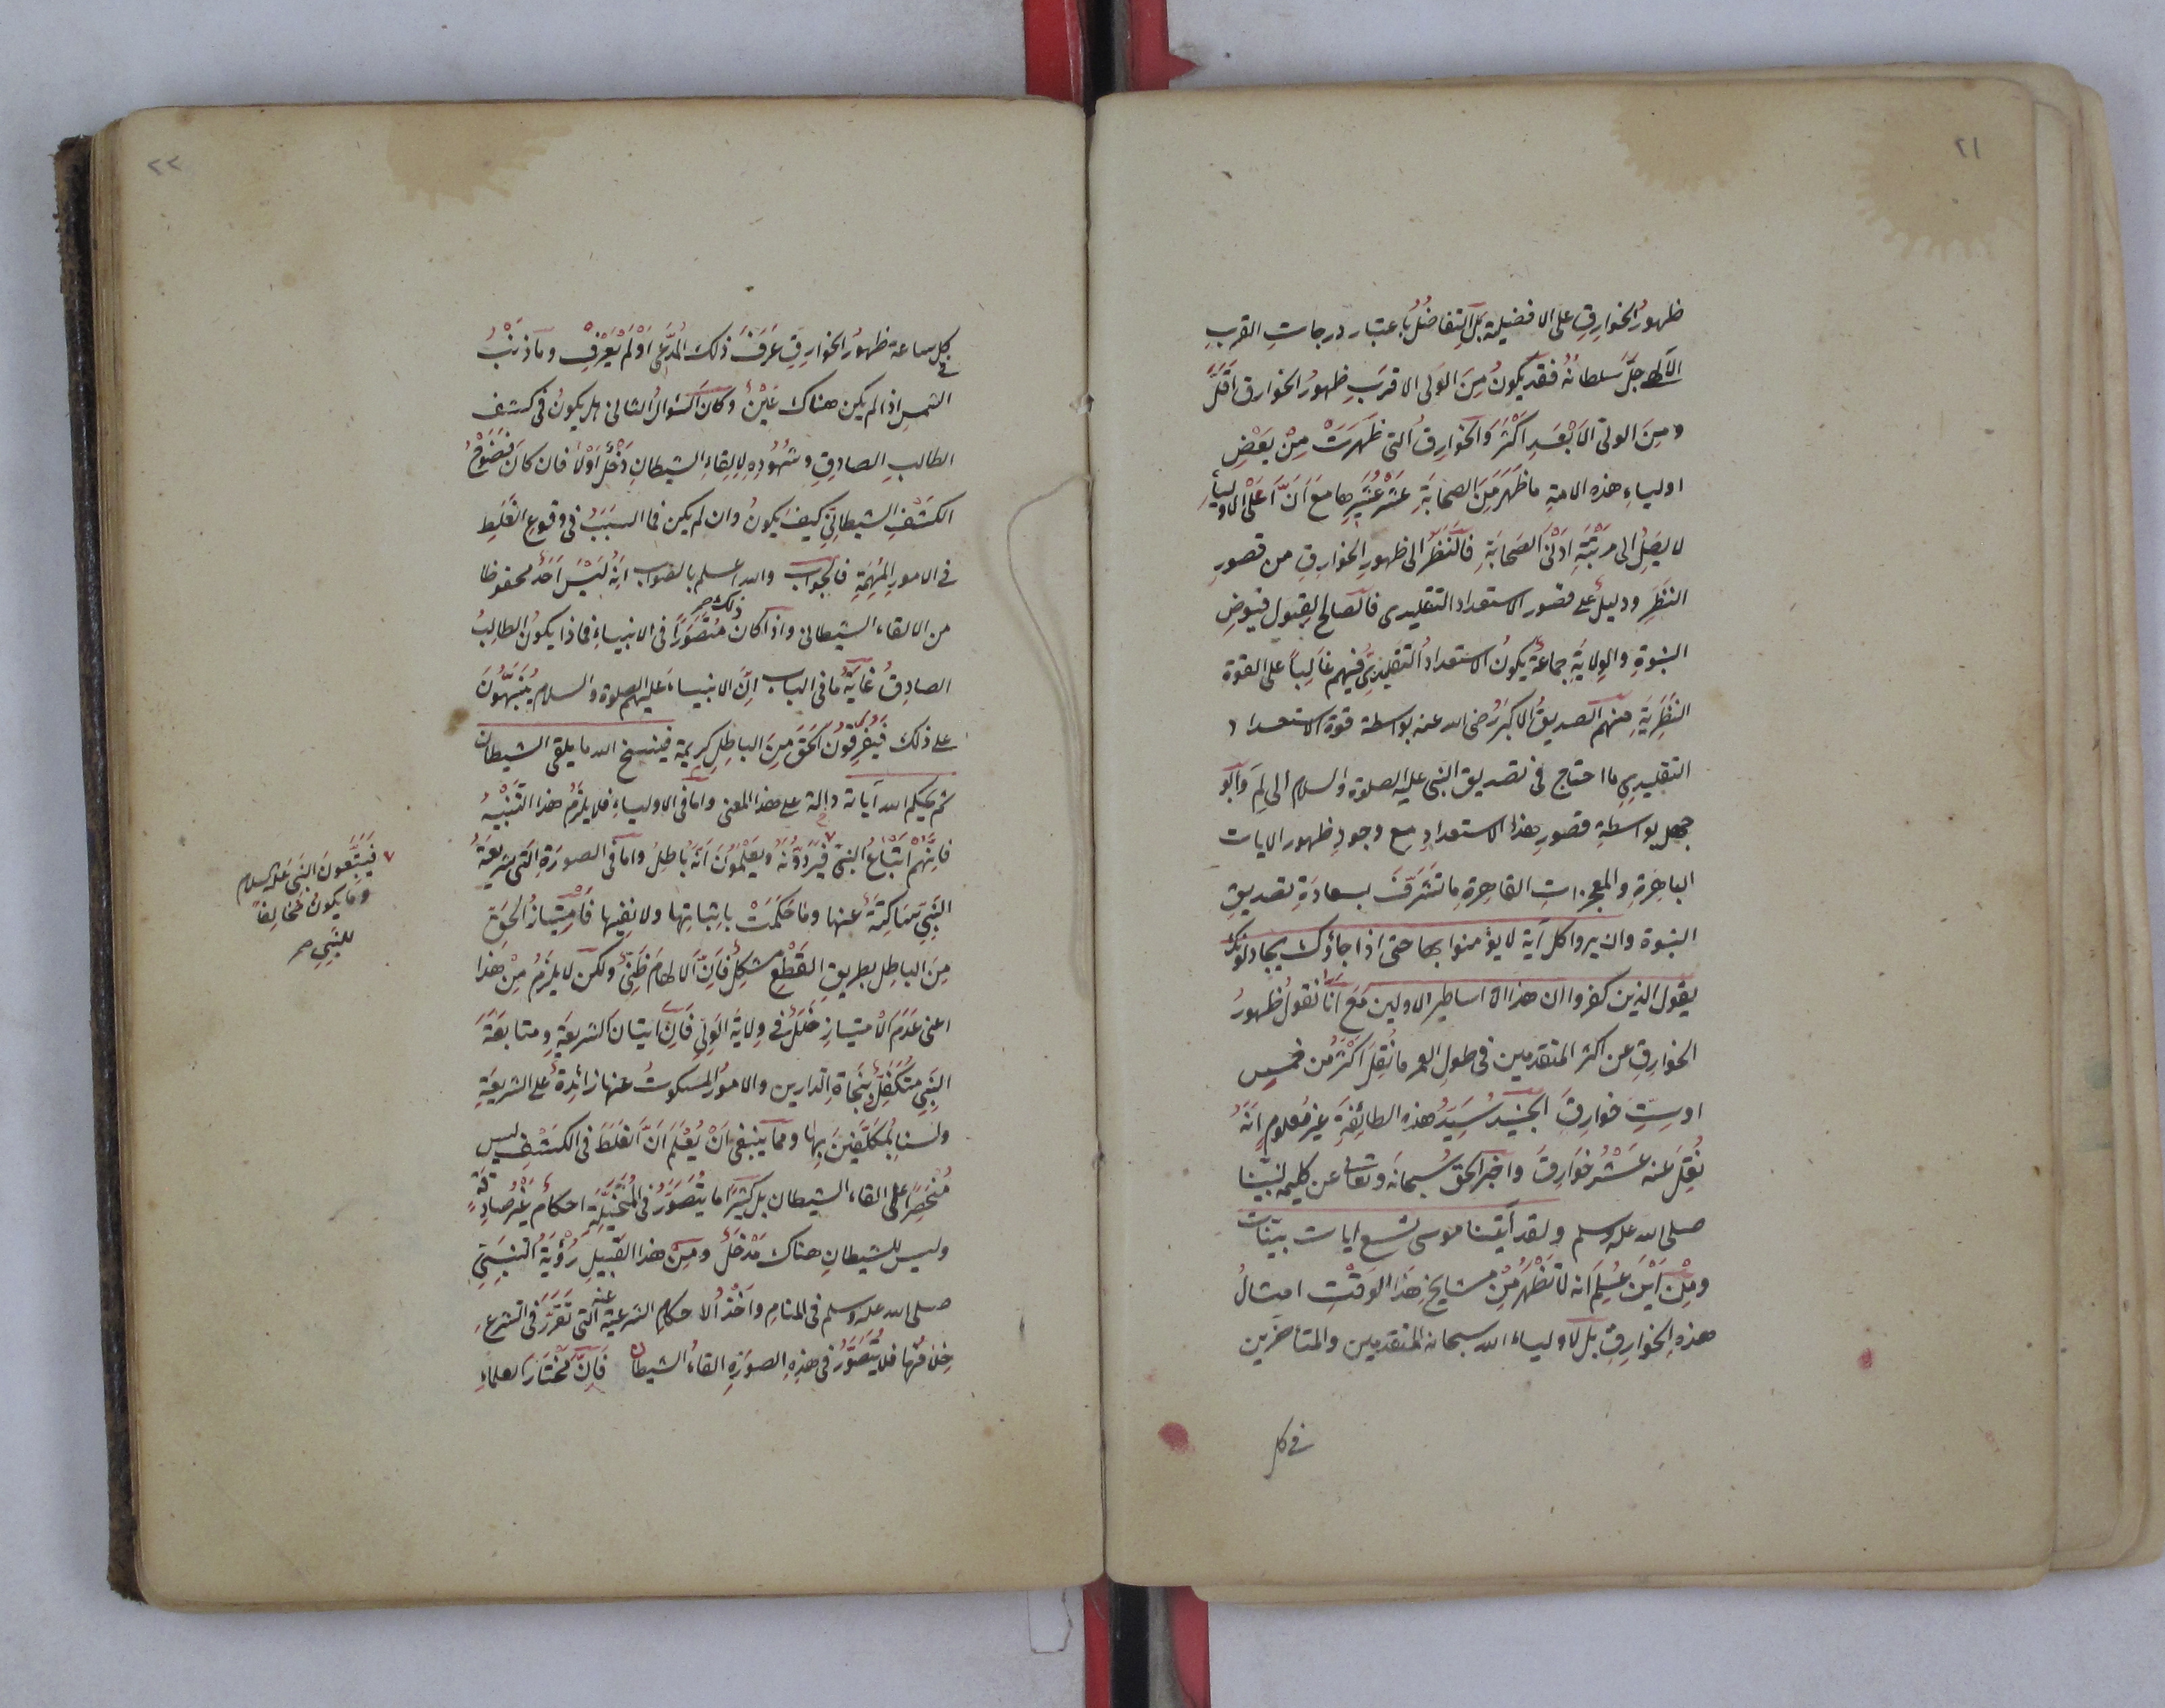 ٢١
ظهورُ الخوارِقِ على الافضلية بل التفاضُلُ باعتبار درجاتِ القربِ
الالٰهى جَلَّ سلطانُهُ فقد يكونُ مِنَ الولى الاقرَبِ ظهورُ الخوارق اقَلَّ
ومِنَ الولىّ الاَبْعَدِ اكْثَرَ والخوارِقُ التى ظَهَرَتْ مِنْ بَعْضِ
اولياءِ هذه الامةِ ماظَهَرَ مِنَ الصحابَةِ عَشْرُ عُشَيْرِها مَعَ اَنَّ اَعْلَى الاولياءِ
لايَصِلُ الى مرتَبَةِ ادْنَى الصَحابَةِ فالنَظَرُ الى ظهورِ الخوارِقِ من قصورِ
النَظَرِ ودليلٌ على قصور الاستعداد التقليدى فالصالح لِقبول فيوضِ
النبوةِ والوِلايَةِ جماعةٌ يكونُ الاستعدادُ التقليدِىُّ فيهم غالِباً على القوة
النَظَرِيَةِ منهم الصديقُ الاكبَرُ رضى الله عنه بواسطة قوة الاستعداد
التقليدِى مااحتاج فى تصديق النبى عليه الصلوة والسلام الى لِمَ وابُو
جهل بواسطةِ قصورِ هذا الاستعدادِ مع وجودِ ظهور الايات
الباهِرَةِ والمعجزاتِ القاهِرةِ ماتَشَرَّفَ بسعادَةِ تصديقِ
النبوة وان يروا كل آية لايؤمنوا بها حتى اذا جاؤك يجادلونك
يقول الذين كفروا ان هذا الا اساطير الاولين مَعَ اَنَّا نقولُ ظهورُ
الخوارِقِ عن اكثر المتقدمين فى طول العمر مانُقِلَ اكْثَرُ من خمسِ
اوسِتِّ خوارِقَ الجنيد سَيِّدُ هذه الطائفَةِ غيرُ معلومٍ اَنَّهُ
نُقِلَ عنه عَشْرُ خوارِقَ واخبرَ الحقُّ سُبحانَه وتعالى عن كليمه لنبينا
صلى الله عليه وسلم ولقد آتينا موسى تسع ايات بينات
ومِنْ اَيْنَ عُلِمَ انه لاتَظْهَرُ مِنْ مشايخِ هَذا الوقْتِ امثالُ
هذهِ الخوارِقِ بل لاولياء الله سبحانه المتقدمين والمتأخرين
فى كل
٢٢
فى كل ساعة ظهورُ الخوارِقِ عَرَفَ ذلك المُدَّعى اَوْ لَمْ يَعْرِفْ وماذنبُ
الشمسِ اذا لم يكن هناك عَيْنٌ وكان السُّوالُ الثانى هل يكونُ فى كشفِ
الطالبِ الصادِقِ وشهُودِهِ لاِلقاءِ الشيطانِ دَخْلٌ اَوْلا فان كان فَضُوْحُ
الكشفِ الشيطانِىِّ كيف يكونُ وان لم يكن فما السبَبُ فى وقوعِ الغَلَطِ
فى الامورِ المُهِمَّةِ فالجواب والله اعلم بالصواب انه لَيْسَ اَحَدٌ محفوظا
من الالقاء الشيطانى واذا كان ذلك مُتَصَوَّراً فى الانبياء فماذا يكونُ الطالِبُ
الصادِقُ غايةُ مافى الباب انَّ الانبياءَ عليهم الصلوة والسلام يُنَبَّهُونَ
على ذلك فيُفَرِّقُونَ الحقَّ مِنَ الباطِلِ كريمة فينسخ الله مايلقى الشيطان
ثم يحكم الله آياته دالة على هذا المعنى واما فى الاولياءِ فلايلزَمُ هذا التَنَبُّهُ
فانهم اتْبَاعُ النبىّ فيَرُدُّونَهُ ويعْلَمُونَ اَنَّهُ باطِلٌ واما فى الصورَةِ التى شريعةُ
النَّبِىّ سَاكِتَةٌ عنها وماحَكَمَتْ باثباتِها ولانفيها فامْتِيازُ الحَقِّ
مِنَ الباطِلِ بطريقِ القَطْعِ مشكِلٌ فاِنَّ الالهامَ ظَنِّىٌّ ولكن لايلزَمُ مِنْ هذا
اعنى عَدَمَ الامتيازِ خَلَلٌ فى وِلايَةِ الوَلِىّ فاِنَّ ايتانَ الشريعةِ ومتابعَةَ
النَبِىّ متَكَفِّلٌ بنَجَاةِ الدارين والامُورُ المسكوتُ عنها زائِدةٌ على الشريعَةِ
ولسنا بِمُكَلَّفِينَ بِها ومما ينبغى اَنْ يُعْلَمَ اَنَّ الغَلَطَ فى الكَشْفِ ليس
مُنْحَصِراً على القاء الشيطان بل كثيرًا ما يُتَصَوَّرُ فى المُتَخَيِّلَةِ احكامٌ غَيْرُ صادِقَةٍ
وليس للشيطانِ هناك مَدْخَلٌ ومِنْ هذا القَبِيلِ رُؤْيَةُ النَّبِىّ
صلى الله عليه وسلم فى المنامِ واَخْذُ الاحكامِ الشرعيةِ عنه التى تَقَرَّرَ فى الشرعِ
خِلافُها فلايُتَصَوَّرُ فى هذِهِ الصورَةِ القاءُ الشيطان فاِنَّ مُخْتَارَ العلماءِ
٧ فيَتَّبِعُونَ النَّبِىَّ عليه السلام
ومايكونُ مُخالِفاً
للنَّبِىّ صح